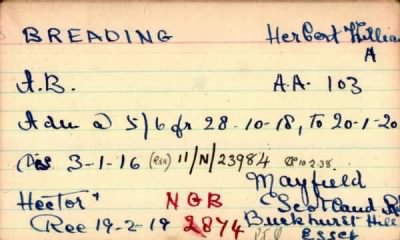 BREADING Herbert William A
A.B. A.A. 103
Adm @ 5/6 fr 28-10-18, To 20-1-20
Dis 3-1-16 (RSU) 11/N/23984 10-2-38
Mayfield
Hector + NGB Scotland Rd
Rec 19-2-19 2874 Buckhurst Hill
Essex